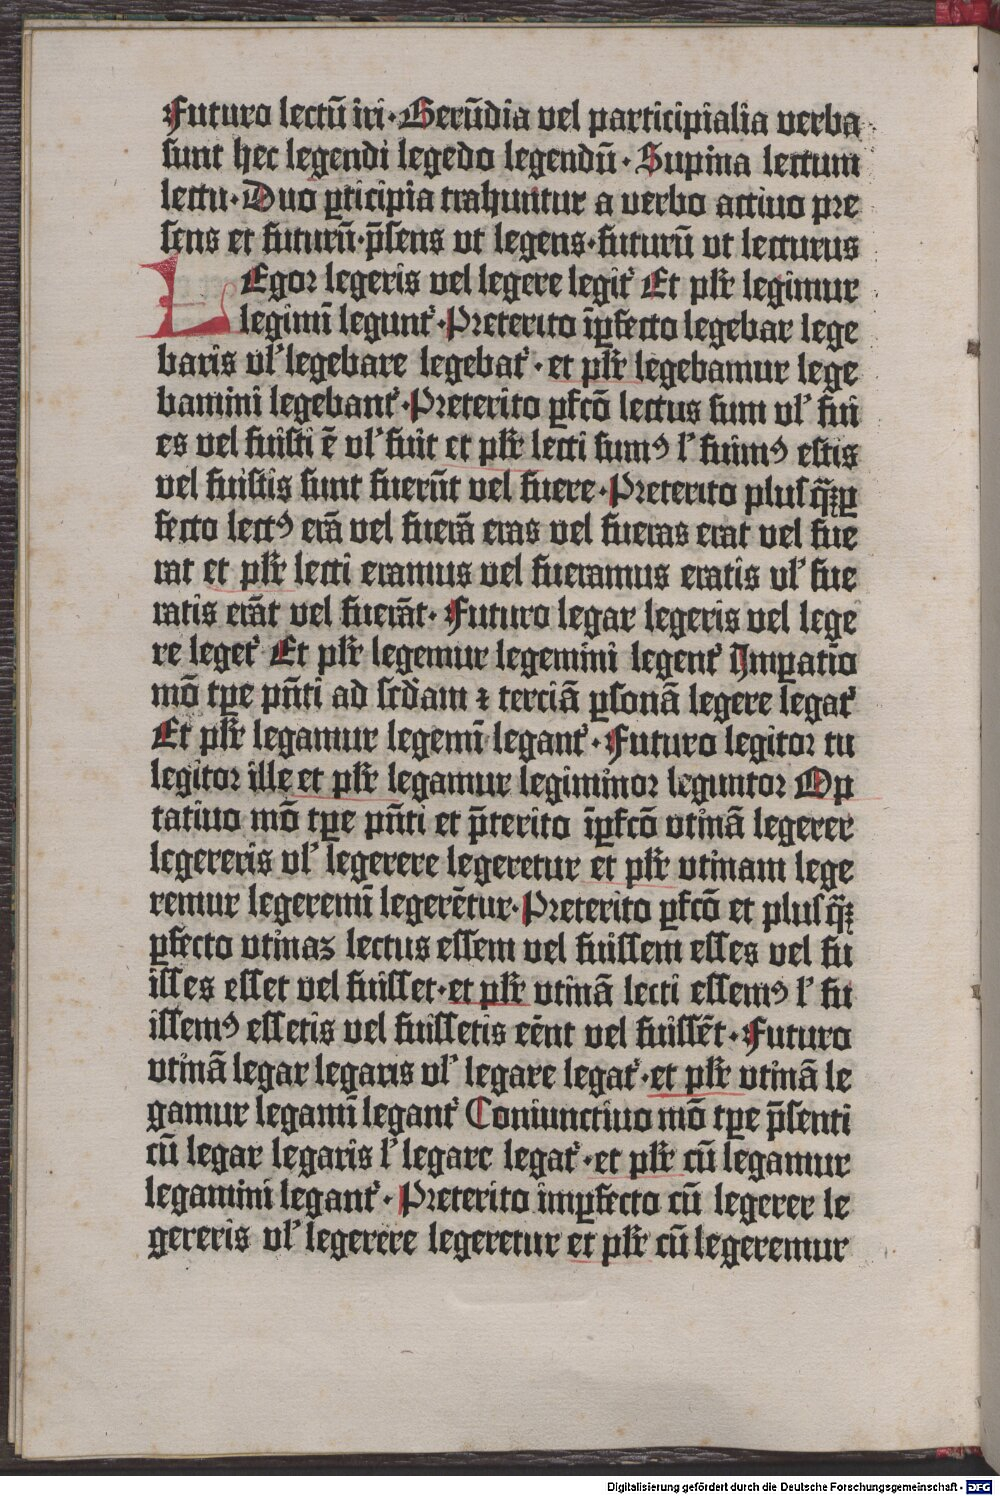 Futuro lectū iri· Gerūdia vel participialia verba
ſunt hec legendi legedo legendū· Supina lectum
lectu· Duo ꝑticipia trahuntur a verbo actiuo pre
ſens et futurū·p̄ſens vt legens·futurū vt lecturus
LEgor legeris vel legere legit᷑ Et pl̄r legimur
legimī legunt᷑·Preterito īꝑfecto legebar lege
baris vl᷑ legebare legebat᷑· et pl̄r legebamur lege
bamini legebant᷑·Preterito ꝑfcō lectus ſum vl᷑ fui
es vel fuiſti ē vl᷑ fuit et pl̄r lecti ſumꝰ l᷑ fuimꝰ eſtis
vel fuiſtis ſunt fuerūt vel fuere·Preterito pluſq̄ꝫꝑ
fecto lectꝰ erā vel fuerā eras vel fueras erat vel fue
rat et pl̄r lecti eramus vel fueramus eratis vl᷑ fue
ratis erāt vel fuerāt· Futuro legar legeris vel lege
re leget᷑ Et pl̄r legemur legemini legent᷑ Imꝑatīo
mō tꝑe pn̄ti ad ſcd̄am ⁊ terciā ꝑſonā legere legat᷑
Et pl̄r legamur legemī legant᷑· Futuro legitor tu
legitor ille et pl̄r legamur legiminor leguntor Op
tatiuo mō tꝑe pn̄ti et p̄terito īꝑfcō vtinā legerer
legereris vl᷑ legerere legeretur et pl̄r vtinam lege
remur legeremī legerētur·Preterito ꝑfcō et pluſq̄ꝫ
ꝑfecto vtinaꝫ lectus eſſem vel fuiſſem eſſes vel fu
iſſes eſſet vel fuiſſet·et pl̄r vtinā lecti eſſemꝰ l᷑ fu
iſſemꝰ eſſetis vel fuiſſetis eēnt vel fuiſſēt·Futuro
vtinā legar legaris vl᷑ legare legat᷑·et pl̄r vtinā le
gamur legamī legant᷑ Coniunctiuo mō tꝑe p̄ſenti
cū legar legaris l᷑ legare legat᷑·et pl̄r cū legamur
legamini legant᷑· Preterito imꝑfecto cū legerer le
gereris vl᷑ legerere legeretur et pl̄r cū legeremur
Digitalisierung gefördert durch die Deutsche Forschungsgemeinschaft - DFG